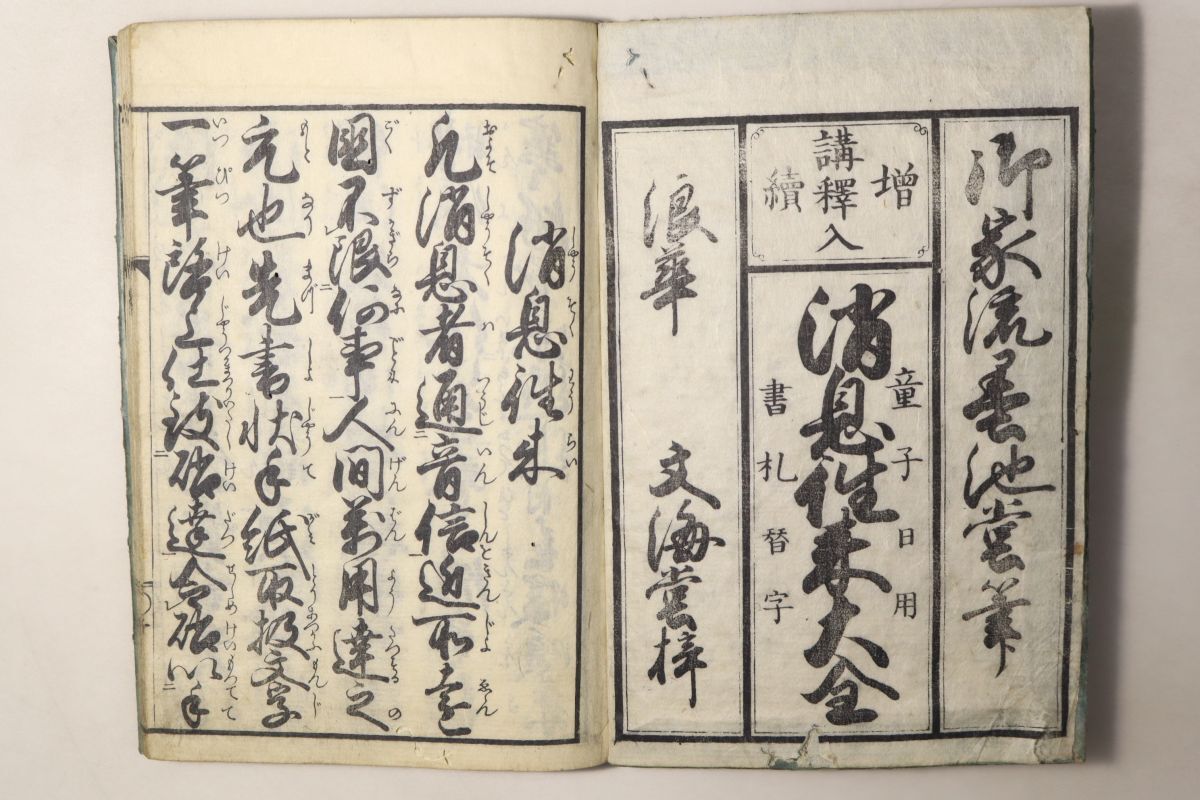 御家流墨池堂筆
增續
講釋入
童子日用
消息往来大全
書札替字
浪華　文海堂梓
消息往来
凡消息者通音信近所遠
國不限何事人間萬用達之
元也先書状手紙取扱文字
一筆啓上仕致啓達令啓以手